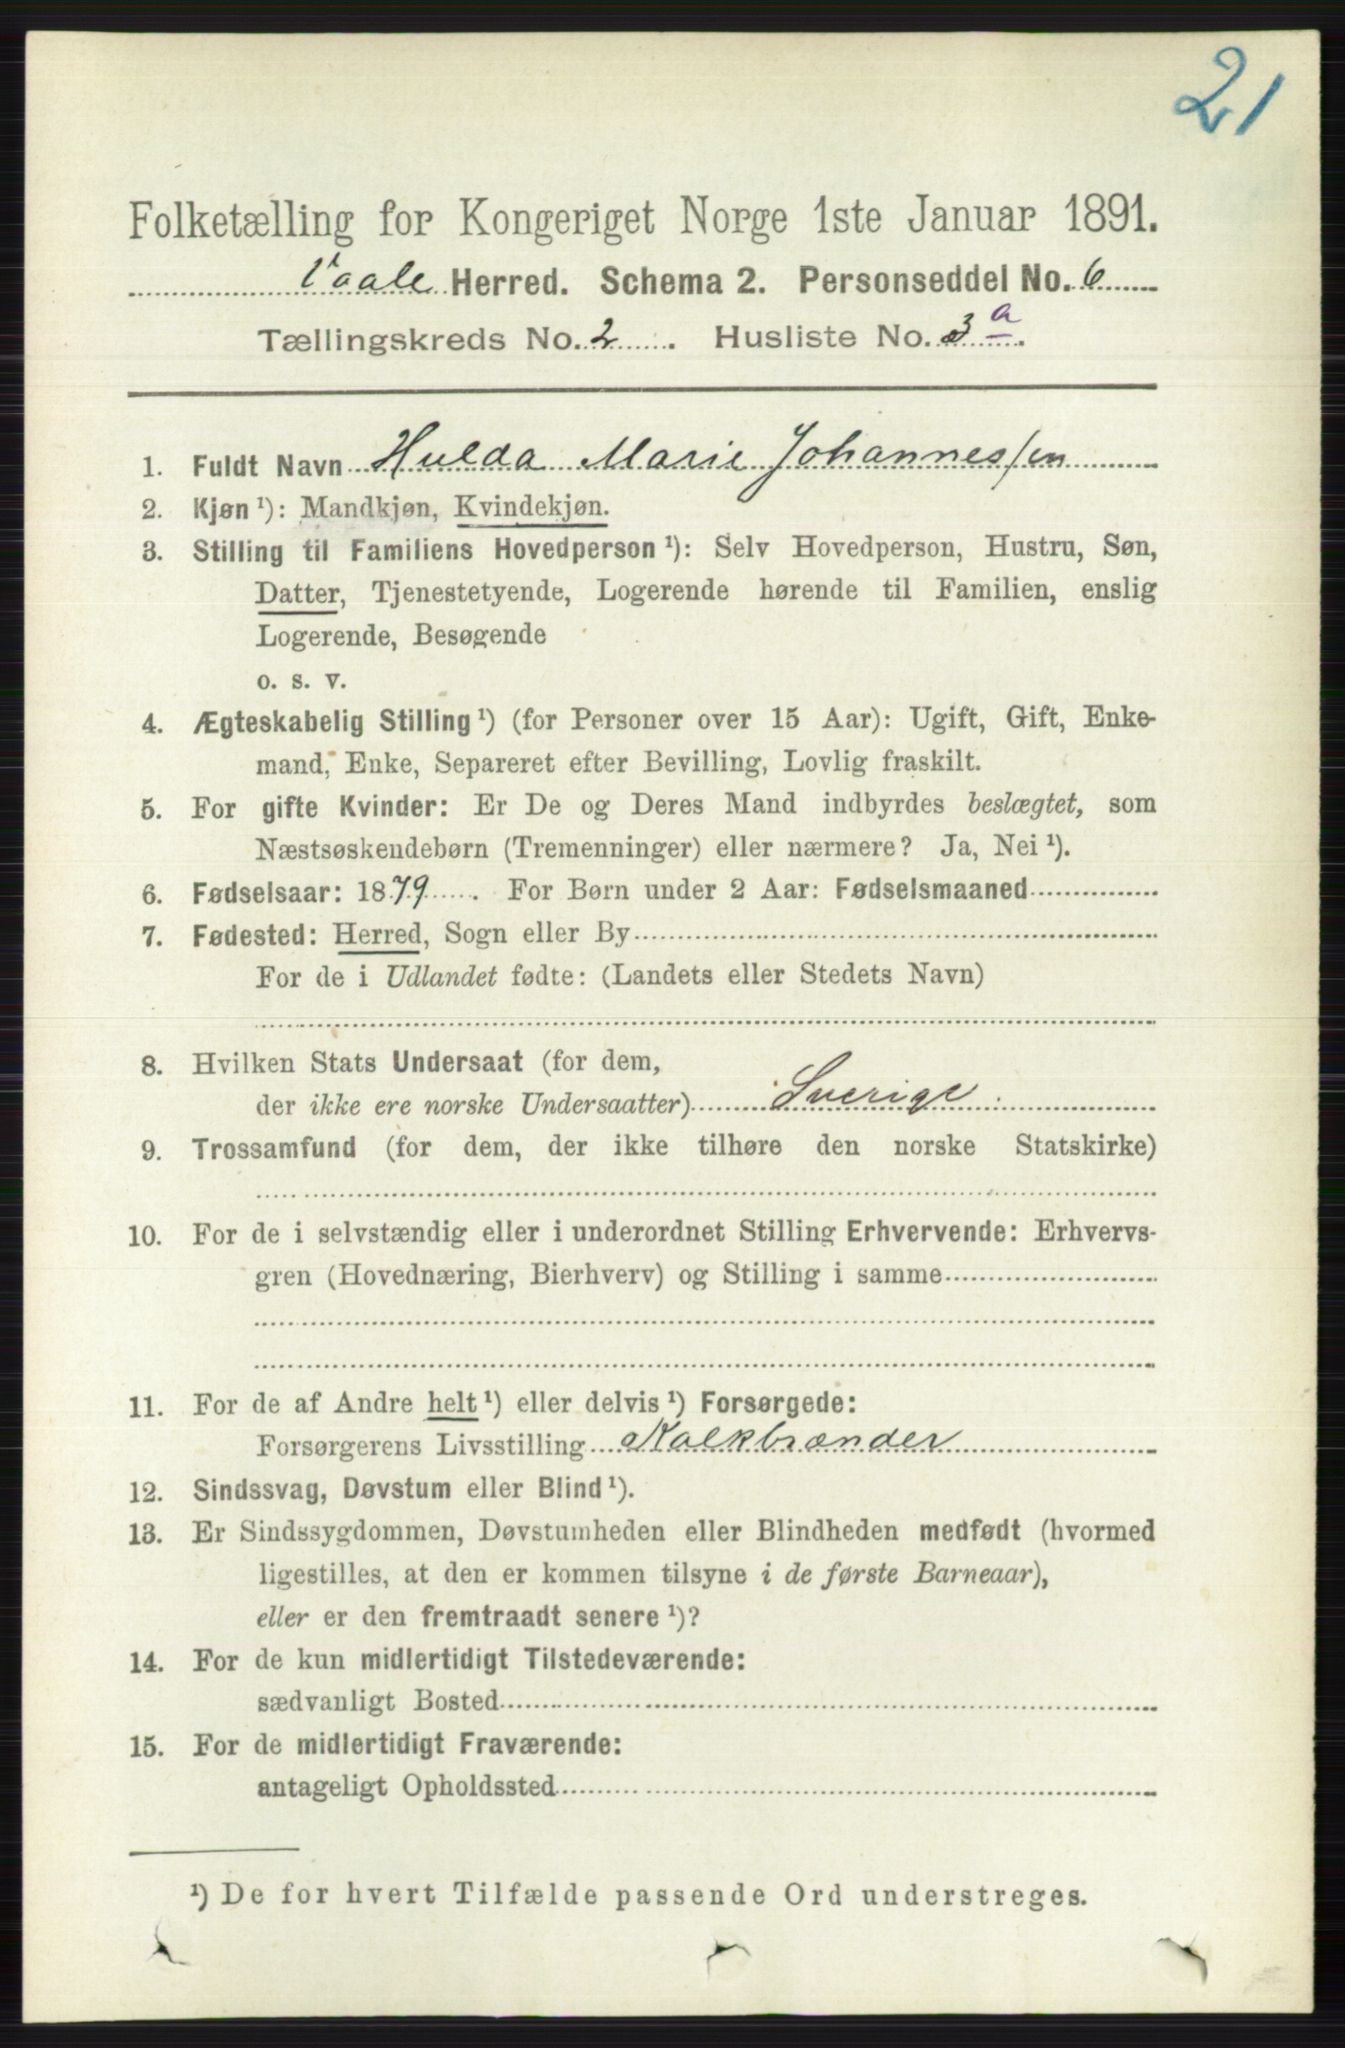 21
Folketælling for Kongeriget Norge 1ste Januar 1891.
Vaale Herred. Schema 2. Personseddel No. 6
Tællingskreds No. 2. Husliste No. 3a.
1. Fuldt Navn Hulda Marie Johannessen
2. Kjøn¹): Mandkjøn, Kvindekjøn.
3. Stilling til Familiens Hovedperson¹): Selv Hovedperson, Hustru, Søn,
Datter, Tjenestetyende, Logerende hørende til Familien, enslig
Logerende, Besøgende
o. s. v.
4. Ægteskabelig Stilling¹) (for Personer over 15 Aar): Ugift, Gift, Enke-
mand, Enke, Separeret efter Bevilling, Lovlig fraskilt.
5. For gifte Kvinder: Er De og Deres Mand indbyrdes beslægtet, som
Næstsøskendebørn (Tremenninger) eller nærmere? Ja, Nei¹).
6. Fødselsaar: 1879. For Børn under 2 Aar: Fødselsmaaned
7. Fødested: Herred, Sogn eller By
For de i Udlandet fødte: (Landets eller Stedets Navn)
8. Hvilken Stats Undersaat (for dem,
der ikke ere norske Undersaatter) Sverige.
9. Trossamfund (for dem, der ikke tilhøre den norske Statskirke)
10. For de i selvstændig eller i underordnet Stilling Erhvervende: Erhvervs-
gren (Hovednæring, Bierhverv) og Stilling i samme
11. For de af Andre helt¹) eller delvis¹) Forsørgede:
Forsørgerens Livsstilling Kalkbrænder
12. Sindssvag, Døvstum eller Blind¹).
13. Er Sindssygdommen, Døvstumheden eller Blindheden medfødt (hvormed
ligestilles, at den er kommen tilsyne i de første Barneaar),
eller er den fremtraadt senere¹)?
14. For de kun midlertidigt Tilstedeværende:
sædvanligt Bosted
15. For de midlertidigt Fraværende:
antageligt Opholdssted
¹) De for hvert Tilfælde passende Ord understreges.